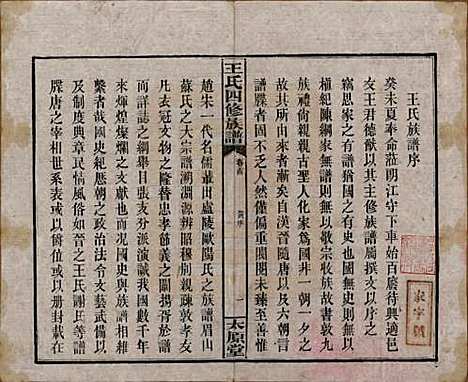 王氏族譜序
癸未夏奉命蒞明江守下車始百廢待興適邑
女王君德猷以其主修族譜屬撰文以序之
竊思家之有譜猶國之有史也國無史則無以
植紀陳綱家無譜則無以敬宗收族故書敦九
族禮尚親親古聖人化家為國非一朝一夕之
故其所由來者漸矣自漢晉隋唐以及六朝言
譜牒者固不乏人然僅偏於重閥閱未臻至善迨
王氏四修族譜
卷首
舊序
一
太原堂
趙宋一代名儒輩出盧陵歐陽氏之族譜眉山
蘇氏之大宗譜溯淵源辨昭穆別親疎敦孝友
凡衣冠文物之隆替忠孝節義之闡揚胥於此
而詳誌之綱舉目張支分派演誠我國數千年
來輝煌燦爛之大文獻也後之史與族譜相
為並重蓋國史紀歷代之政治法令文藝武備以
及制度典章而族譜肇始於晉之王氏嗣氏等族譜
牒唐之宰相世系表或以列傳或以冊封載在
家字號